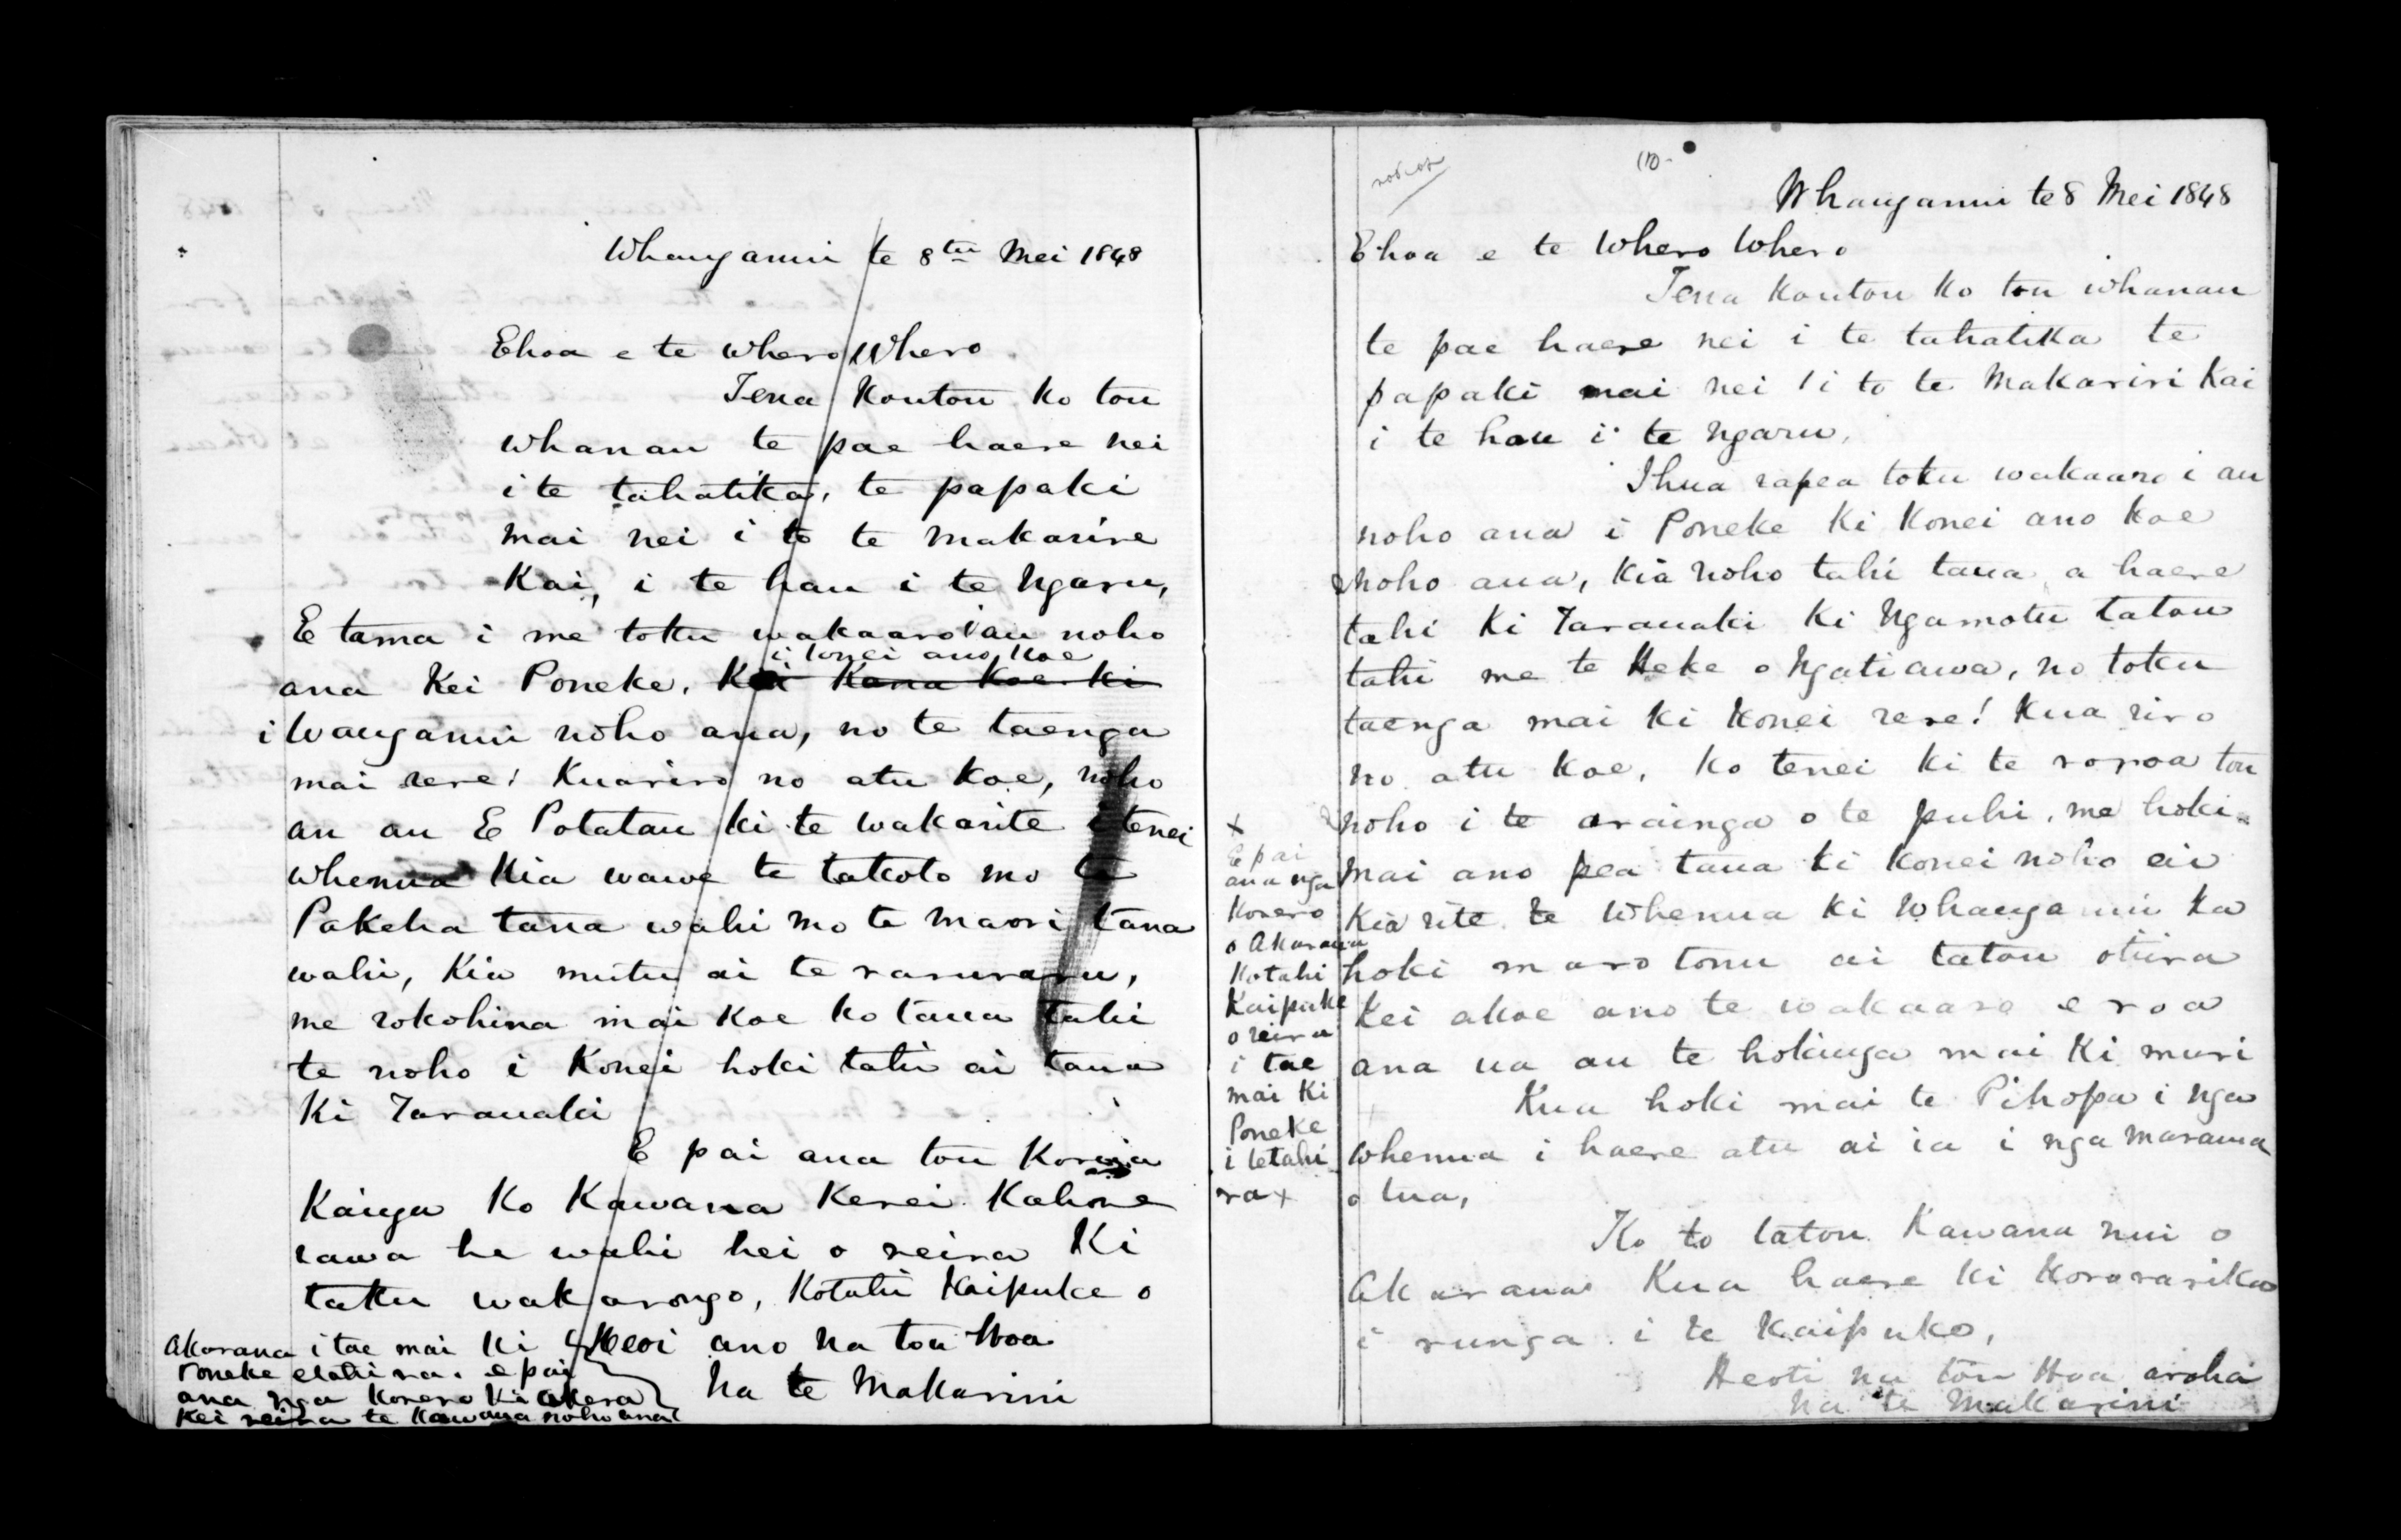 Whanganui te 8tu Mei 1848
Ehoa e te Whero Whero
Tena Koutou Ko tou
whanau te pae haere nei
i te tahatika, te papaki
mai nei i to te makarire
Kai, i te hau i te Ngaru,
E tama i me toku wakaaro i au noho
i konei ano koe
ana Kei Poneke, Kei Kana Koe ki
i Wanganui noho ana, no te taenga
mai rere! Kuariro no atu Koe, noho
au au E Potatau ki te wakarite i tenei
whenua Kia wawe te takoto mo te
Pakeha tana wahi mo te maori tana
wahi, Kia mutu ai te raruraru,
me rokohina mai Koe ko taua tahi
te noho i Konei hoki tahi ai taua
Ki Taranaki
E pai ana tou
Kainga Ko Kawana Kerei Kahore
rawa he wahi hei o reira Ki
taku wakarongo, Kotahi Kaipuke o
Akarana i tae mai Ki
Poneke etahi ra. e pai
ana nga Korero Ki
Kei reira te Kawana noho ana
Heoi ano Na tou Hoa
Na te Makarini
(10-
Whanganui te 8 Mei 1848
Ehoa e te Whero Whero
Tena Koutou Ko tou whanau
te pae haere nei i te tahatika te
papaki mai nei i to te Makariri Kai
i te hau i te ngaru,
Ihua rapea toku wakaaro i au
noho ana i Poneke Ki Konei ano Koe
noho ana, Kia noho tahi taua, a haere
tahi Ki Taranaki Ki Ngamotu tatou
tahi me te Heke o Ngatiawa, no toku
taenga mai Ki Konei rere! Kua riro
no atu Koe, Ko tenei Ki te roroa tou
noho i te arainga o te puhi, me hoki
mai ano pea taua Ki Konei noho ai
Kia rite te Whenua Ki Whanganui Ka
hoki maro tonu ai tatou otiira
Kei akoe ano te wakaaro e roa
ana ua au te hokinga mai Ki muri
Kua hoki mai te Pihopa i nga
whenua i haere atu ai ia i nga marama
o tua,
Ko to tatou Kawana nui o
Akarana Kua haere Ki Kororarika
i runga i te Kaipuke,
Heoti na tou Hoa aroha
Na te Makarini
x
E pai
ana nga
Korero
o Akarana
Kotahi
Kaipuke
o reira
i tae
mai Ki
Poneke
i tetahi
ra x